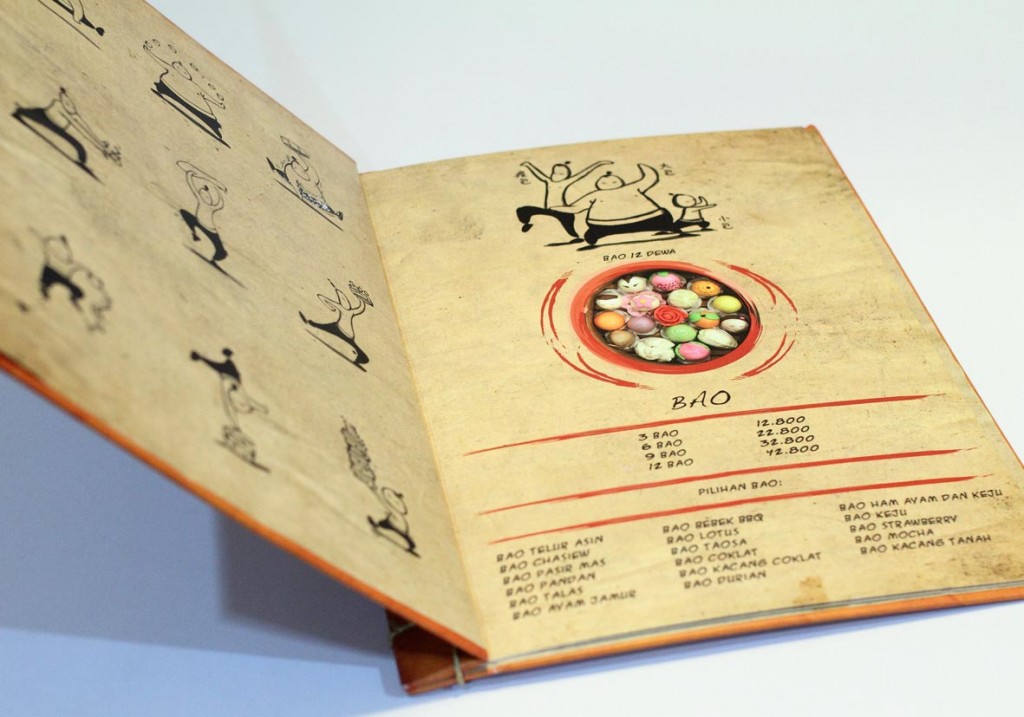 BAO 12 DEWA
BAO
3 BAO 12.800
6 BAO 22.800
9 BAO 32.800
12 BAO 42.800
PILIHAN BAO:
BAO TELUR ASIN
BAO CHASIEW
BAO PASIR MAS
BAO PANDAN
BAO TALAS
BAO AYAM JAMUR
BAO BEBEK BBQ
BAO LOTUS
BAO TAOSA
BAO COKLAT
BAO KACANG COKLAT
BAO DURIAN
BAO HAM AYAM DAN KEJU
BAO KEJU
BAO STRAWBERRY
BAO MOCHA
BAO KACANG TANAH